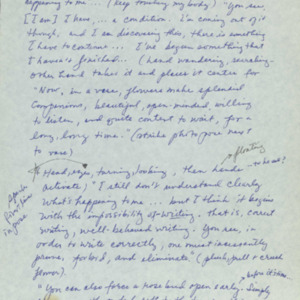 happening to me... (keep touching my body) "You see,
[I am] I have, ... a condition. I'm coming out of it
though, and I am discovering this, there is something
I have to continue... I've begun something that
I have to finish... (hand wandering, searching-
other hand takes it and places it center for
"Now, in a vase, flowers make splendid
companions, beautiful, open-minded, willing
to listen, and quite content to wait, for a
long, long time." (strike photo pose next
to vase)
floating
Head, eyes, turning, looking, then hands to head?
activate, "I still don't understand clearly
what's happening to me... but I think it begins
with the impossibility of writing. that is, correct
writing, well-behaved writing. You see, in
order to write correctly, one must incessantly
prune, forbid, and eliminate" (pluck, pull & crush
flower).
"You can also force a rose bud open early. Simply